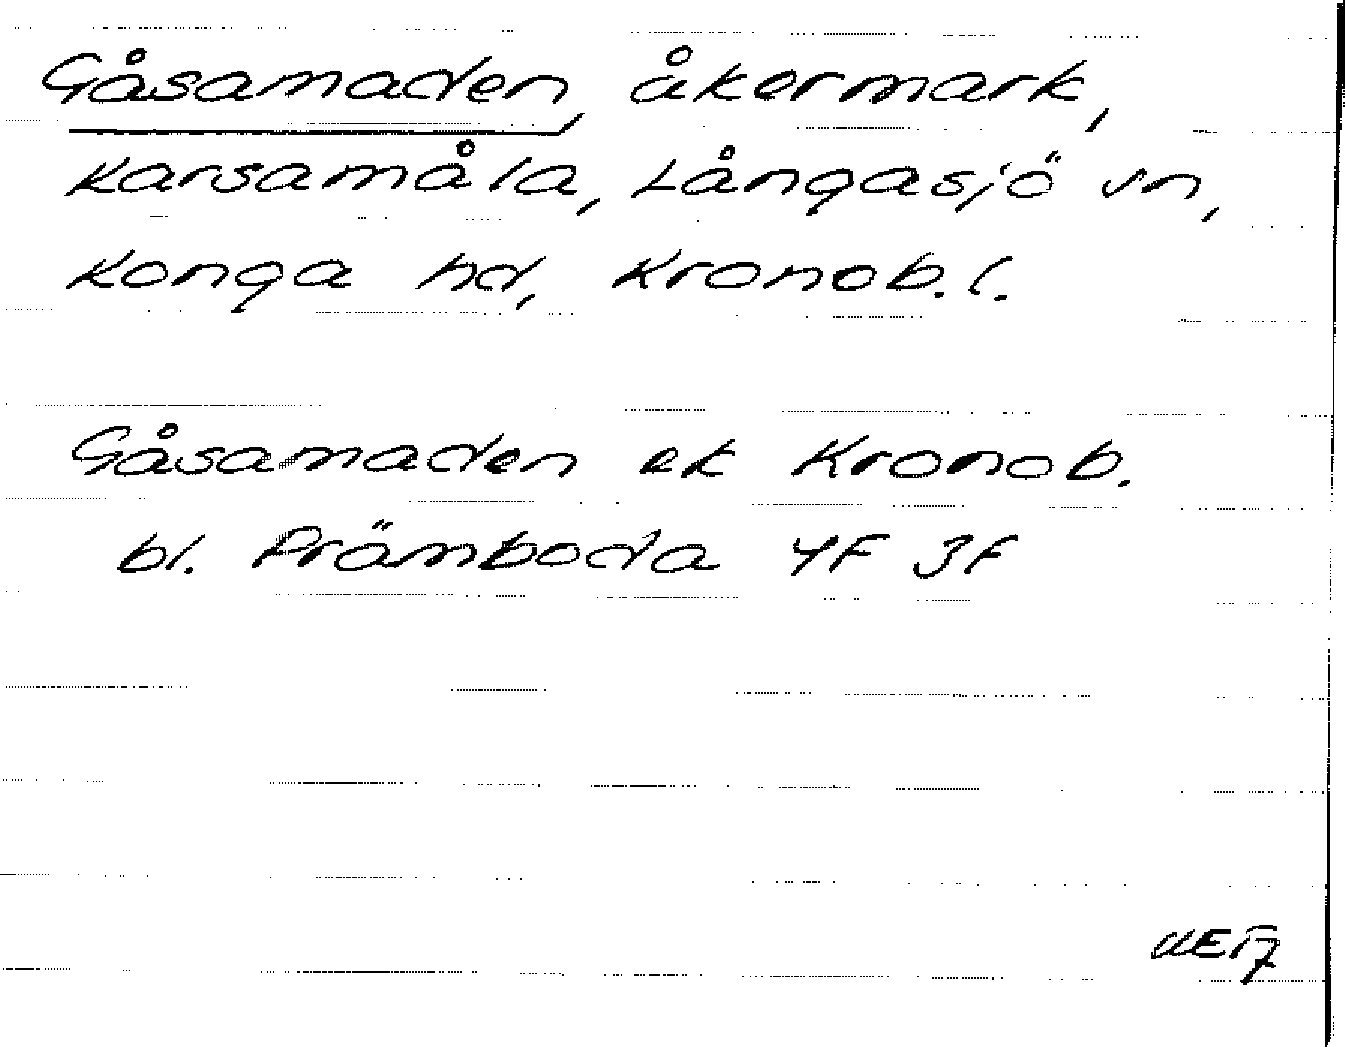 Gåsamaden, åkermark,
Karsamåla, Långasjö sn,
Konga hd, Kronob. l.
Gåsamaden ek Kronob.
bl. Främboda 4F 3F